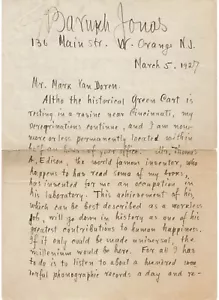 Baruch Jonas
136 Main str. W. Orange N.J.
March 5, 1927
Mr. Mark Van Doren.
Altho the historical Green Cart is
resting in a ravine near Cincinnati, my
peregrinations continue, and I am now
more or less permanently located within
of your office. Mr. Thomas
A. Edison, the world famous inventor, who
happens to has read some of my books,
has invented for me an occupation in
his laboratory. This achievement of his
which can be best described as a
job, will go down in history as one of his
greatest contributions to human happiness.
If it only could be made universal, the
millenium would be here. For all I has
to do is to listen to about a hundred
phonographic records a day and re-